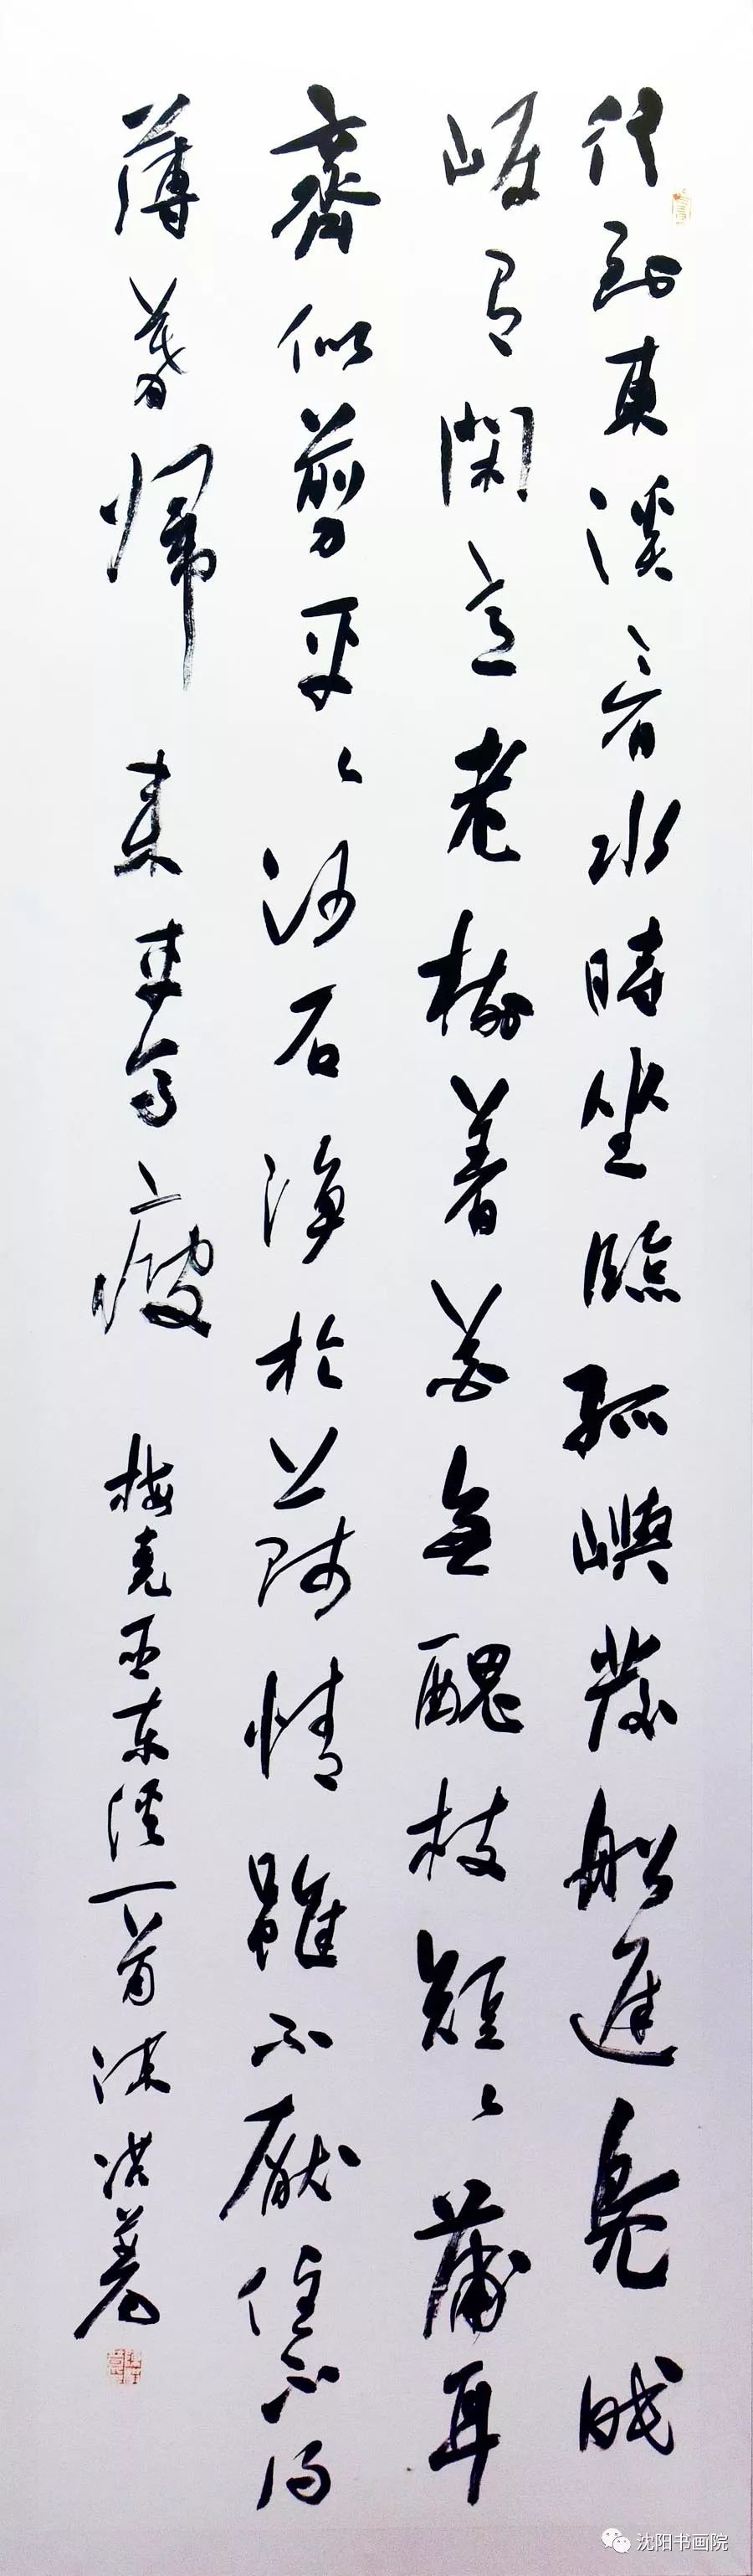 行到東溪看水時坐臨孤嶼發船遲鳧眠
岸有閑意老樹著花無醜枝短々蒲耳
齊似剪平々沙石淨於篩情雖不厭住不得
薄暮歸來車馬疲 梅堯臣东溪一首 洪
沈阳书画院